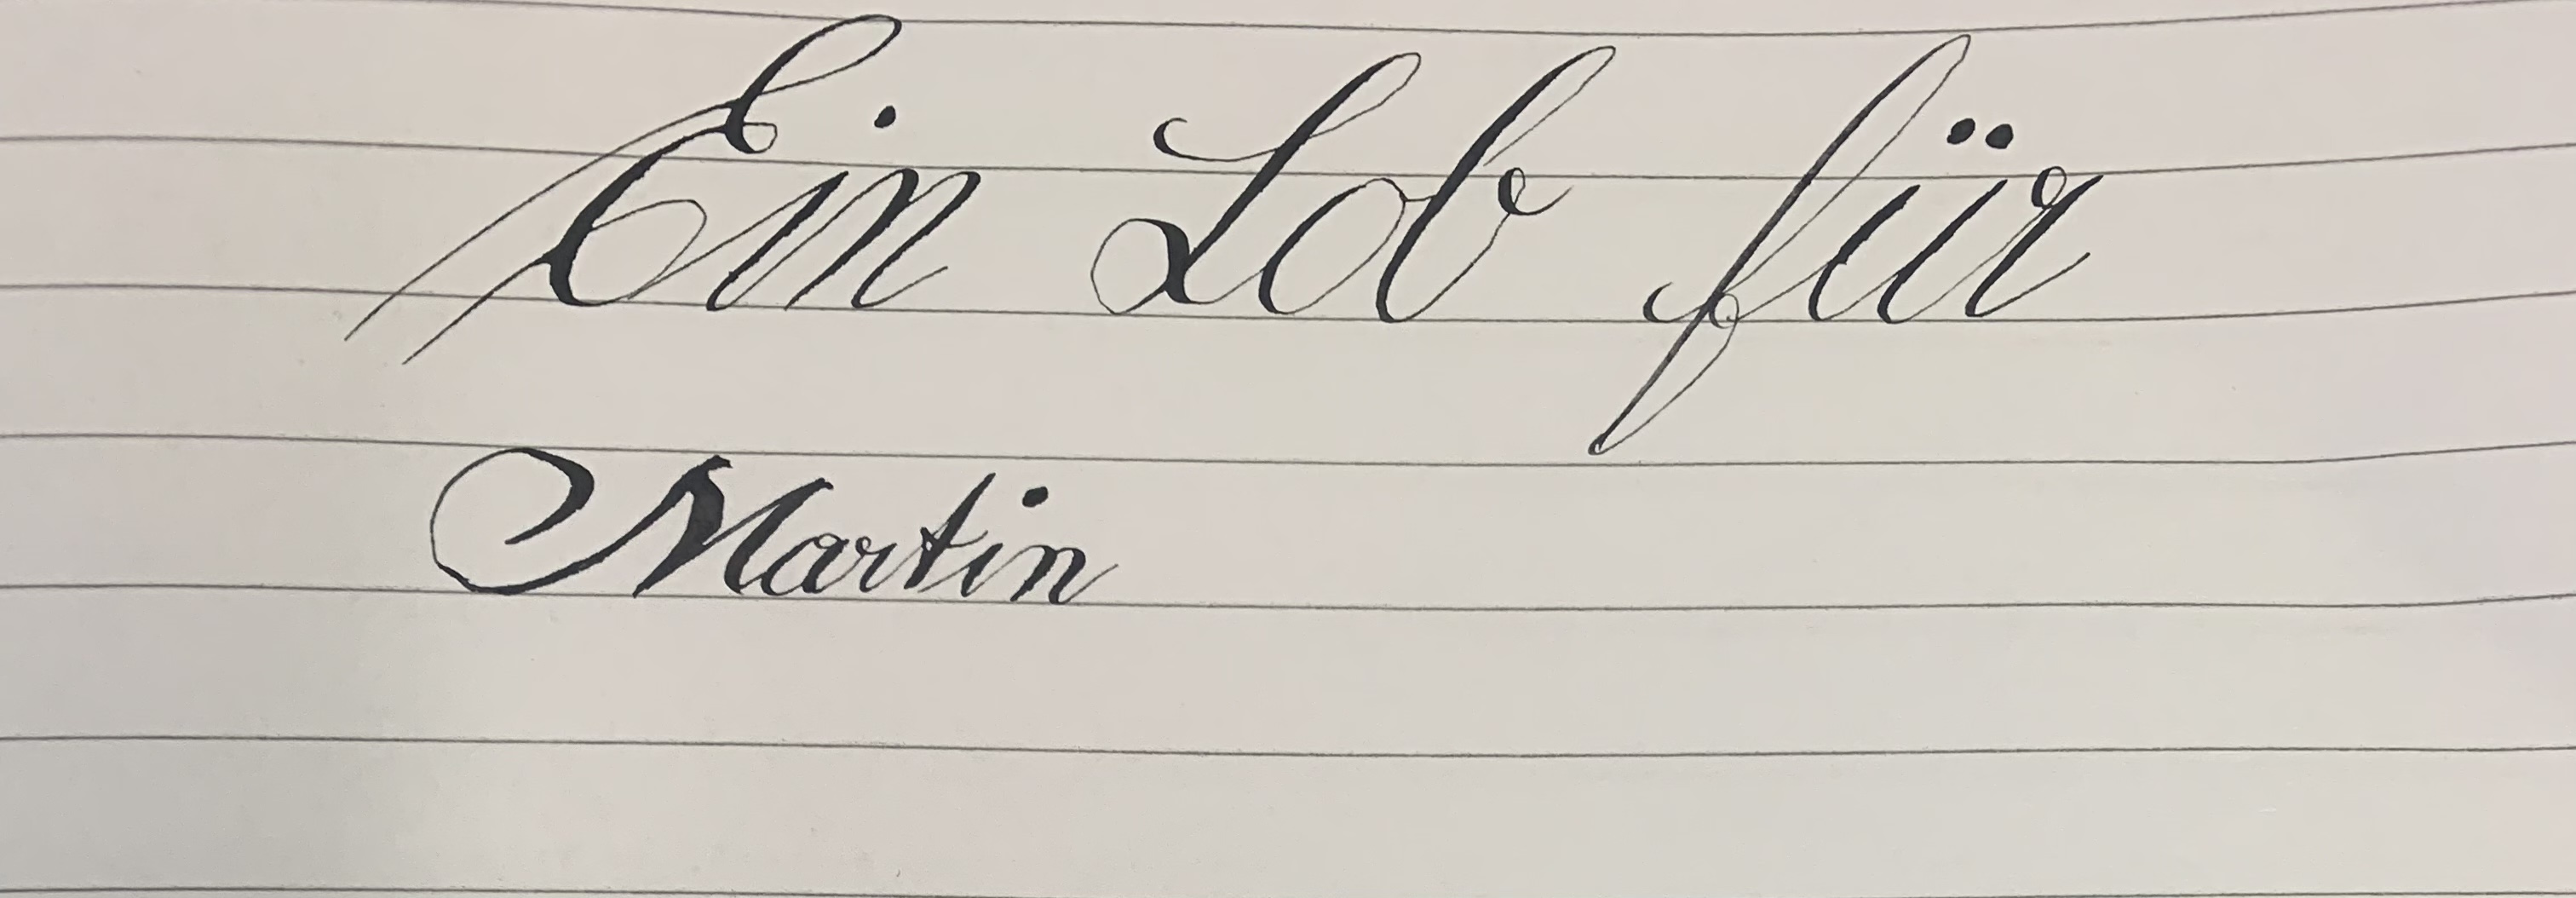 Ein Lob für
Martin